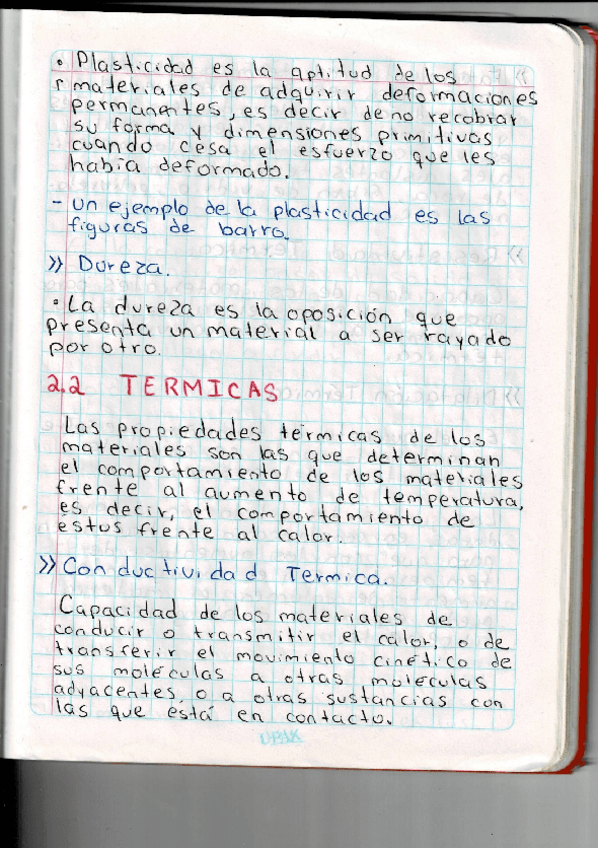 • Plasticidad es la aptitud de los
materiales de adquirir deformaciones
permanentes, es decir de no recobrar
su forma y dimensiones primitivas
cuando cesa el esfuerzo que les
había deformado.
- un ejemplo de la plasticidad es las
figuras de barro.
» Dureza.
• La dureza es la oposición que
presenta un material a ser rayado
por otro.
2.2 TERMICAS
Las propiedades térmicas de los
materiales son las que determinan
el comportamiento de los materiales
frente al aumento de temperatura,
es decir, el comportamiento de
estos frente al calor.
» Conductividad Termica.
Capacidad de los materiales de
conducir o transmitir el calor, o de
transferir el movimiento cinético de
sus moléculas a otras moléculas
adyacentes o a otras sustancias con
las que está en contacto.